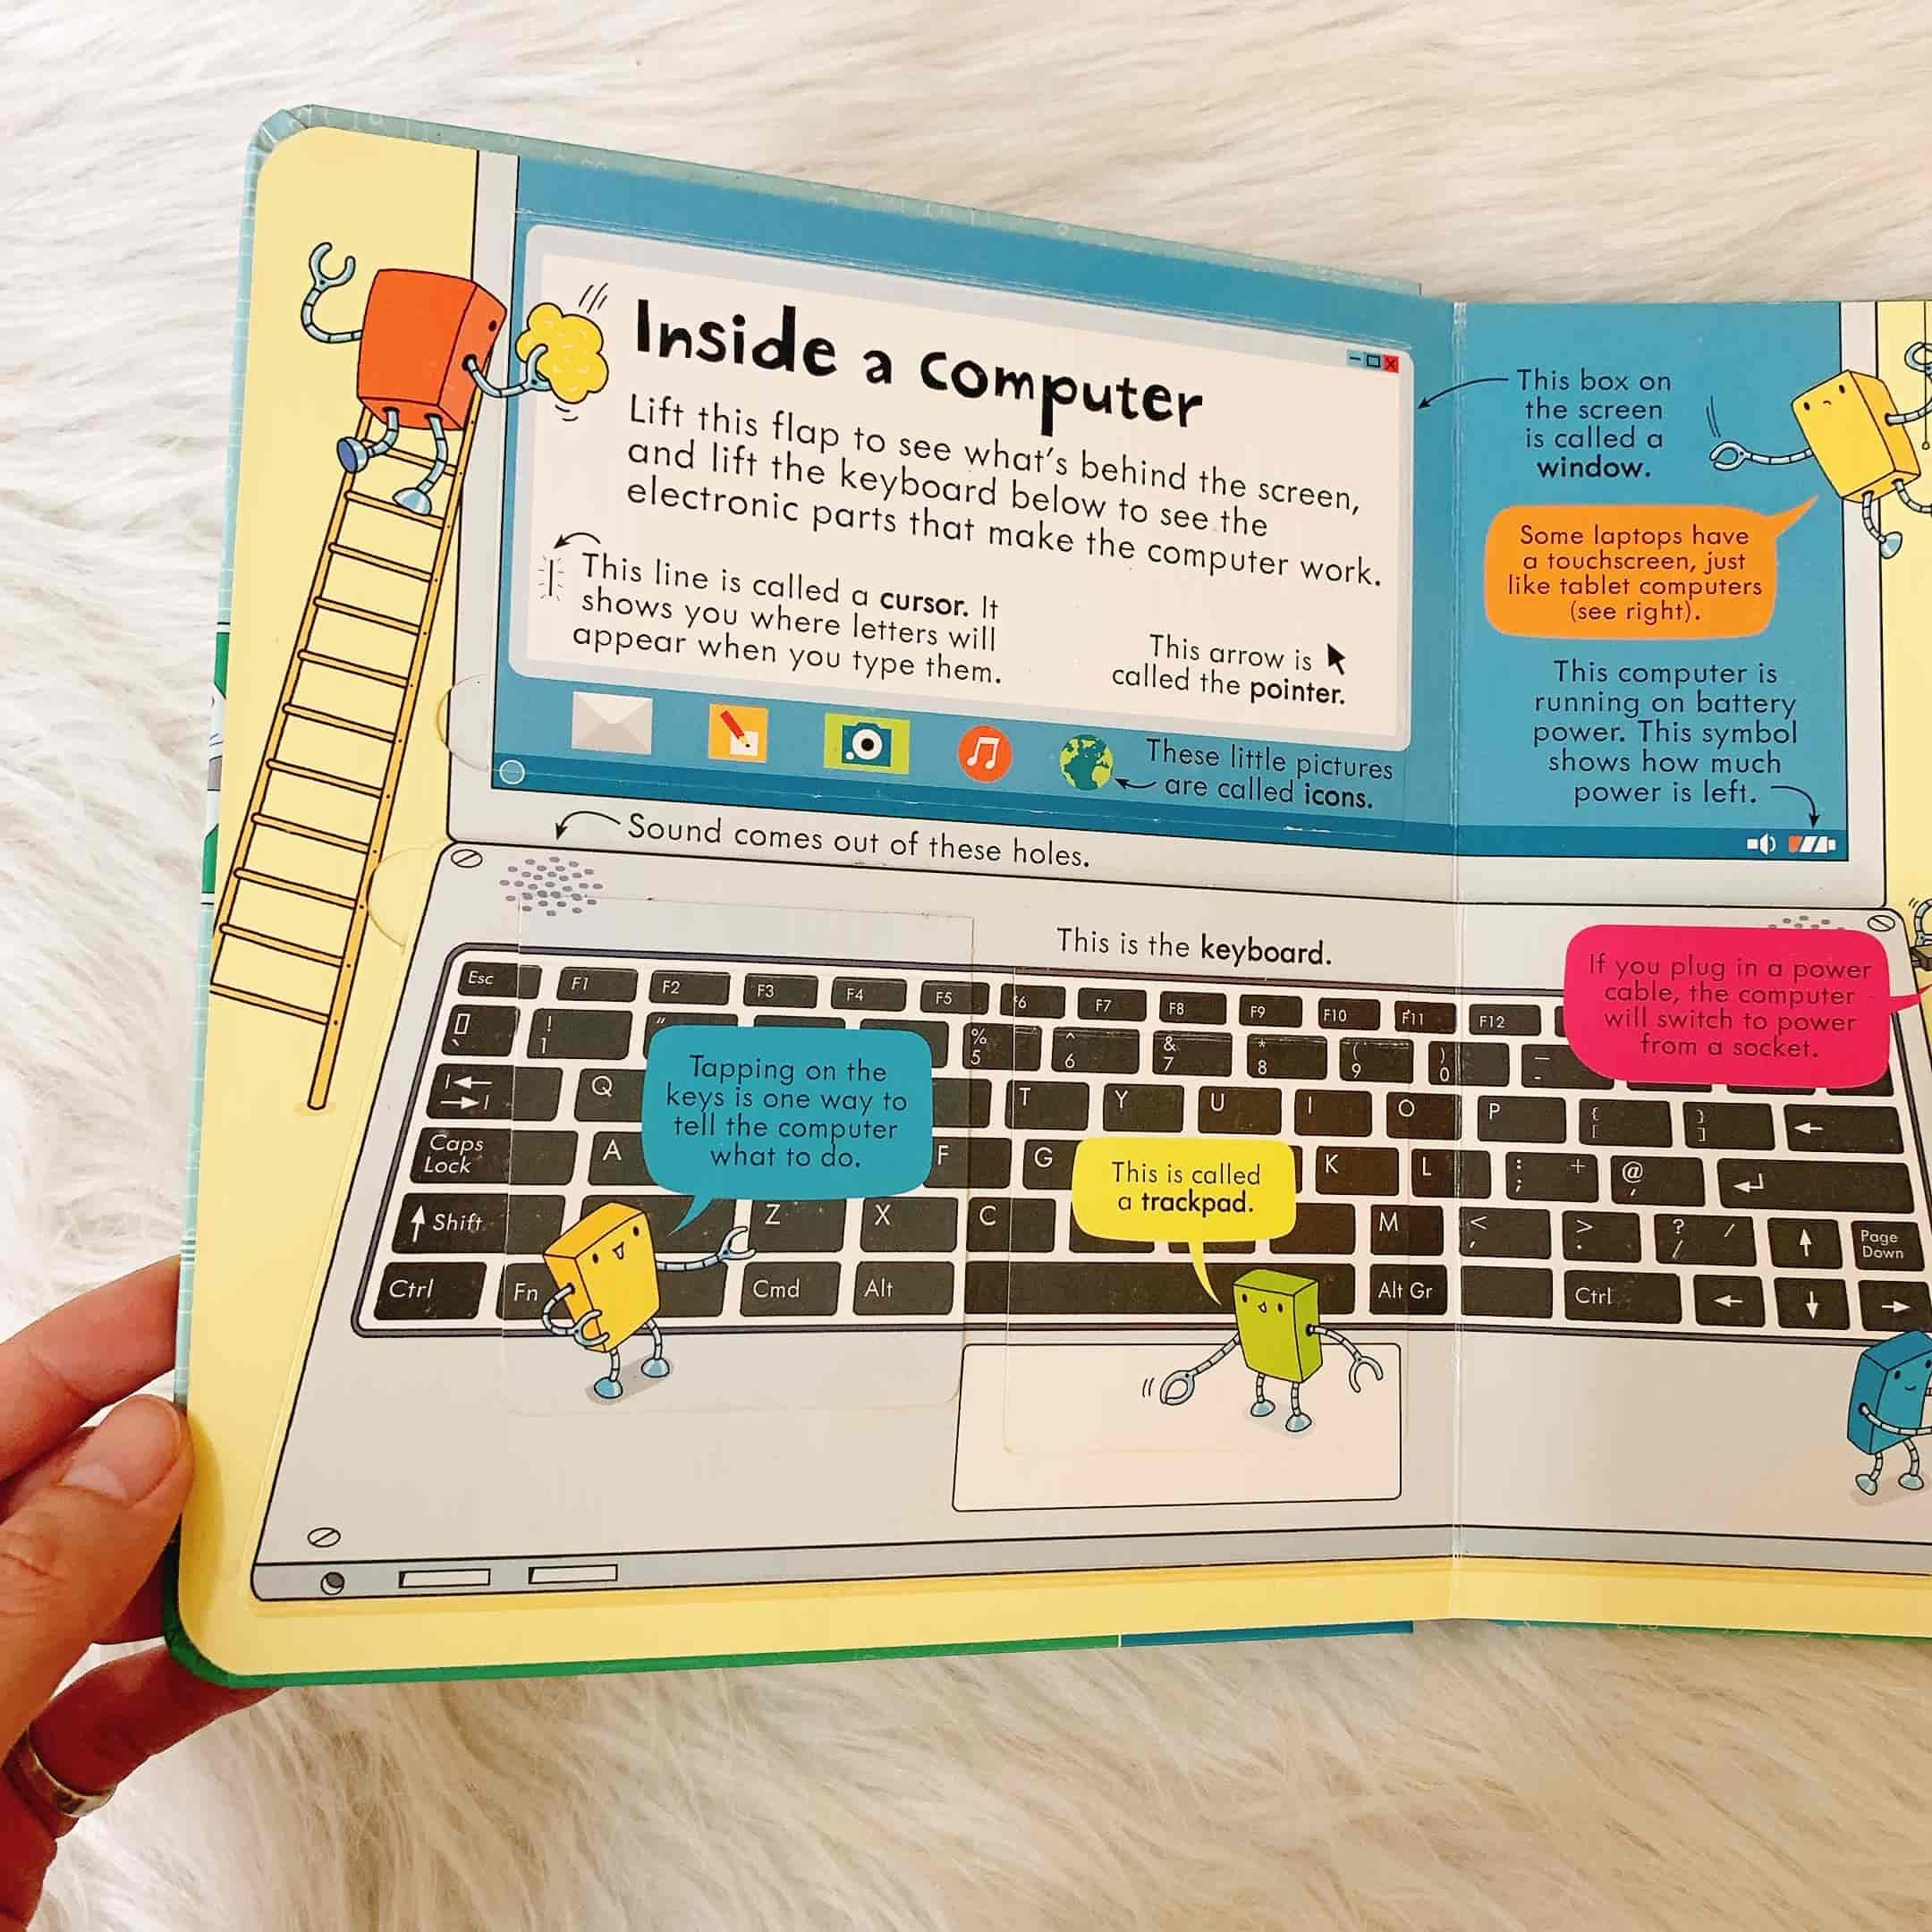 Inside a computer
Lift this flap to see what's behind the screen,
and lift the keyboard below to see the
electronic parts that make the computer work.
This line is called a cursor. It
shows you where letters will
appear when you type them.
This arrow is
called the pointer.
These little pictures
are called icons.
This box on
the screen
is called a
window.
Some laptops have
a touchscreen, just
like tablet computers
(see right).
This computer is
running on battery
power. This symbol
shows how much
power is left.
Sound comes out of these holes.
This is the keyboard.
If you plug in a power
cable, the computer
will switch to power
from a socket.
Esc F1 F2 F3 F4 F5 F6 F7 F8 F9 F10 F11 F12
` ! 1 " % 5 ^ 6 & 7 * 8 ( 9 ) 0 _ -
Tapping on the
keys is one way to
tell the computer
what to do.
Q T Y U I O P { [ } ]
Caps
Lock
A F G K L : ; + @ '
This is called
a trackpad.
Shift Z X C M < , > . ? /
Page
Down
Ctrl Fn Cmd Alt Alt Gr Ctrl